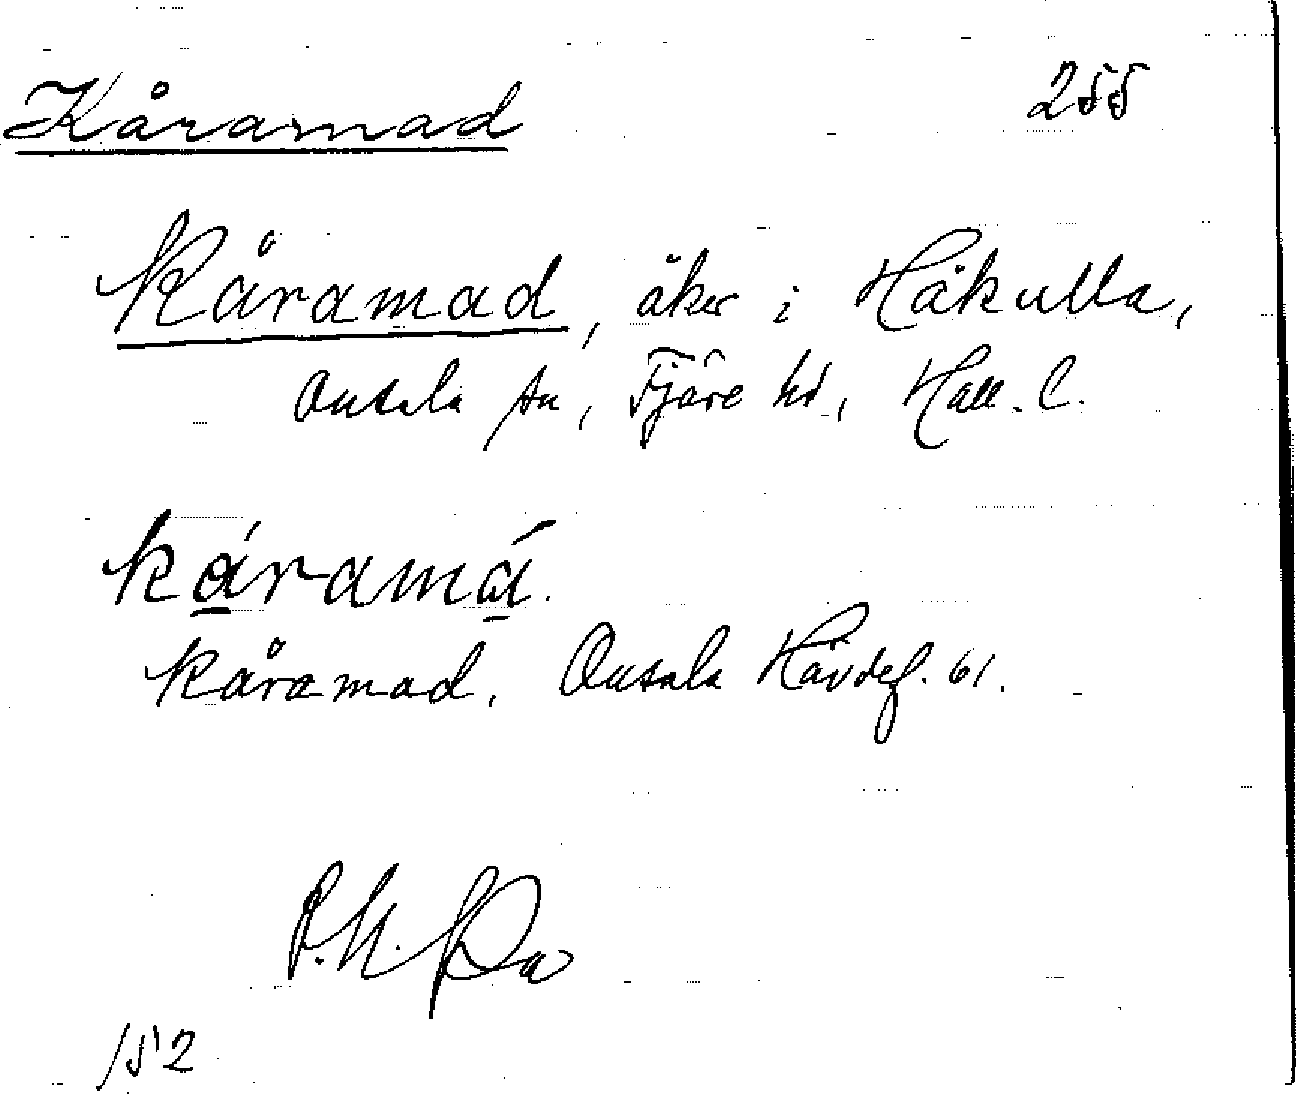 Kåramad 255
Kåramad, åker i Håkulla,
Onsala sn, Fjäre hd, Hall. l.
káramá.
Kåramad, Onsala Hävdef. 61.
152